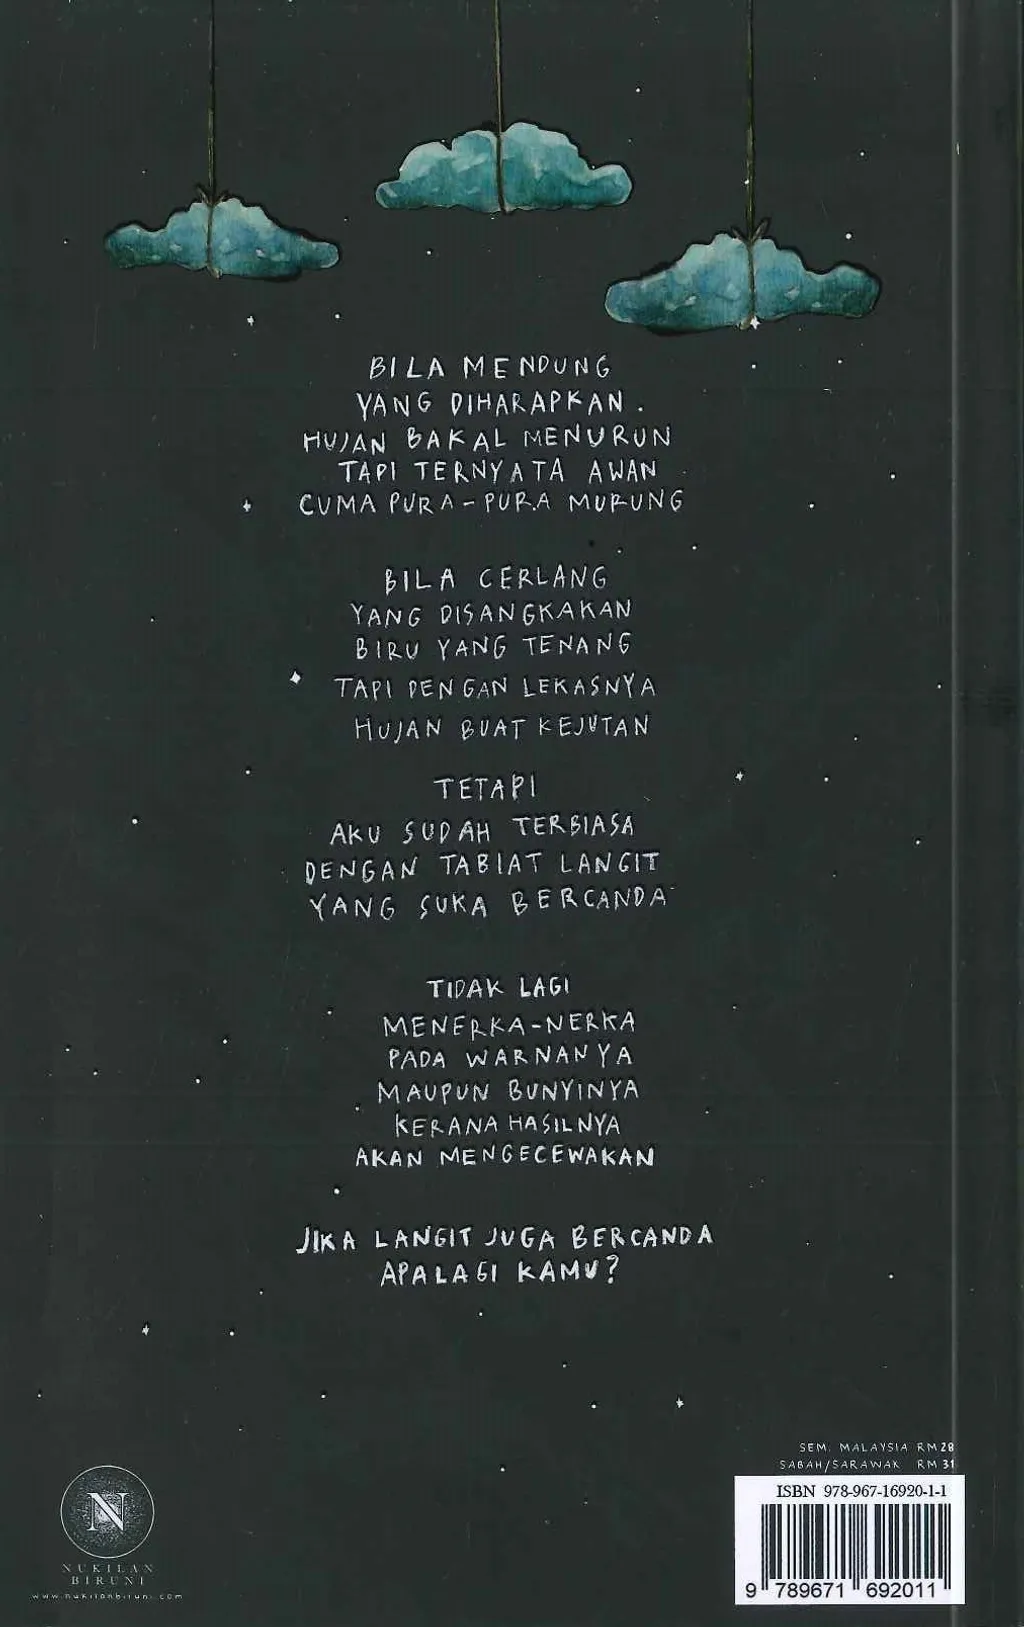 BILA MENDUNG
YANG DIHARAPKAN.
HUJAN BAKAL MENURUN
TAPI TERNYATA AWAN
CUMA PURA-PURA MURUNG
BILA CERLANG
YANG DISANGKAKAN
BIRU YANG TENANG
TAPI DENGAN LEKASNYA
HUJAN BUAT KEJUTAN
TETAPI
AKU SUDAH TERBIASA
DENGAN TABIAT LANGIT
YANG SUKA BERCANDA
TIDAK LAGI
MENERKA-NERKA
PADA WARNANYA
MAUPUN BUNYINYA
KERANA HASILNYA
AKAN MENGECEWAKAN
JIKA LANGIT JUGA BERCANDA
APALAGI KAMU?
N
NUKILAN
BIRUNI
www.nukilanbiruni.com
SEM. MALAYSIA RM28
SABAH/SARAWAK RM31
ISBN 978-967-16920-1-1
9 789671 692011